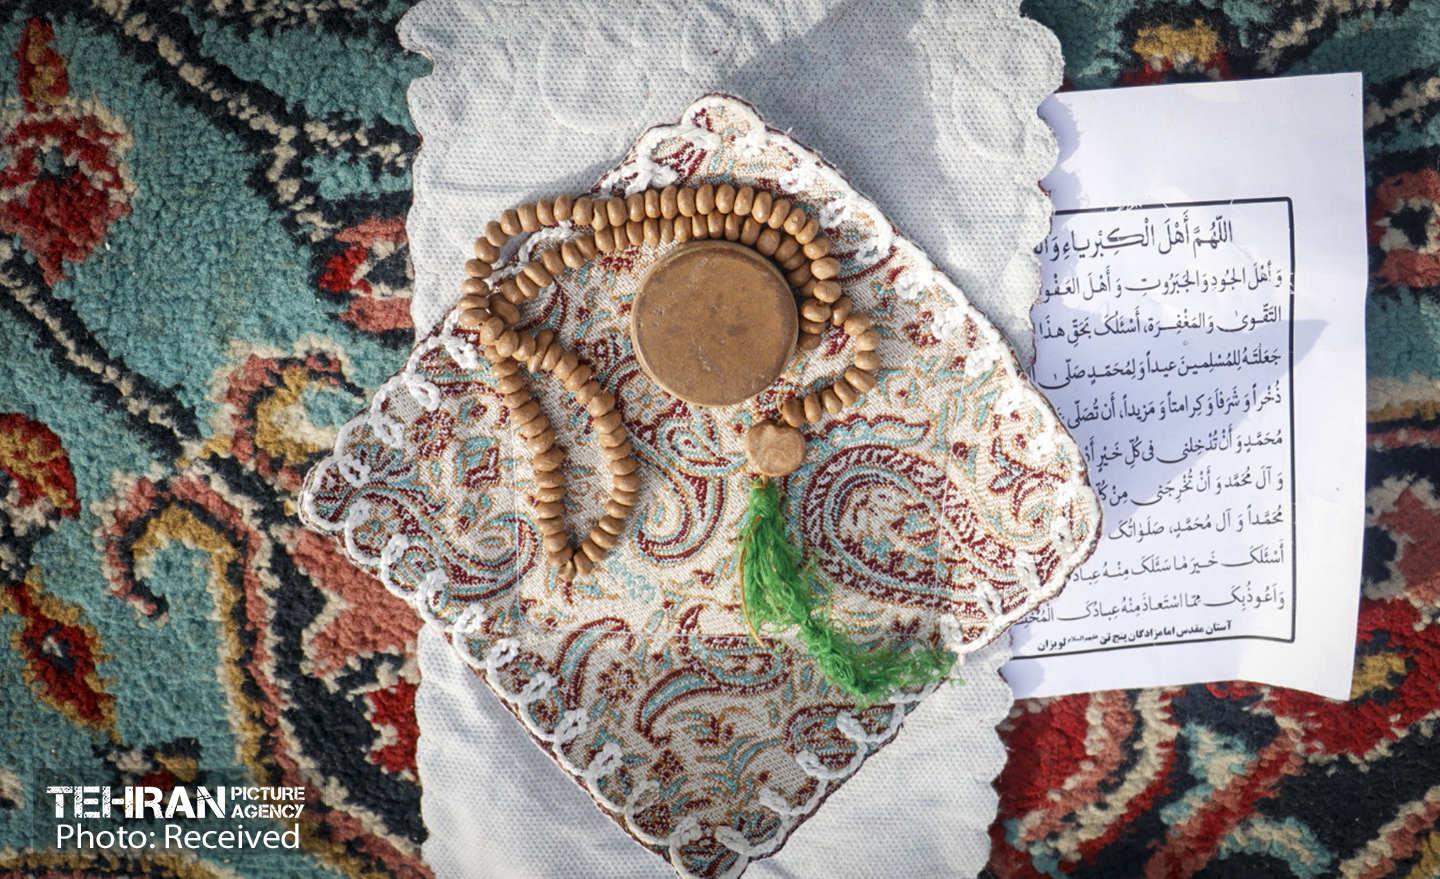 اللّهُمَّ أَهْلَ الْكِبْرِياءِ
وَ أَهْلَ الجُودِ وَ الجَبَرُوتِ وَ أَهْلَ العَفْو
التَّقْوىٰ وَالمَغْفِرَةِ، أَسْئَلُکَ بَحَقِّ هذَا
جَعَلْتَهُ لِلْمُسْلِمينَ عيداً وَ لِمُحَمَّدٍ صَلَّى
ذُخْراً وَ شَرَفاً وَ كِرامتاً وَ مَزيداً، أَن تُصَلّى
مُحَمَّدٍ وَ أَنْ تُدْخِلنى فى كُلِّ خَيْرٍ
وَ آلَ مُحَمَّد وَ أَنْ تُخْرِجَنى مِنْ
مُحَمَّداً وَ آل مُحَمَّدٍ، صَلَواتُکَ
أَسْئَلُکَ خَيرَ مٰا سَئَلَکَ مِنْهُ
وَ أَعُوذُ بِکَ مِمّا اسْتَعاذَ مِنْهُ عِبادُکَ
آستان مقدس امامزادگان پنج تن علیهم‌السلام لویزان
TEHRAN PICTURE AGENCY
Photo: Received